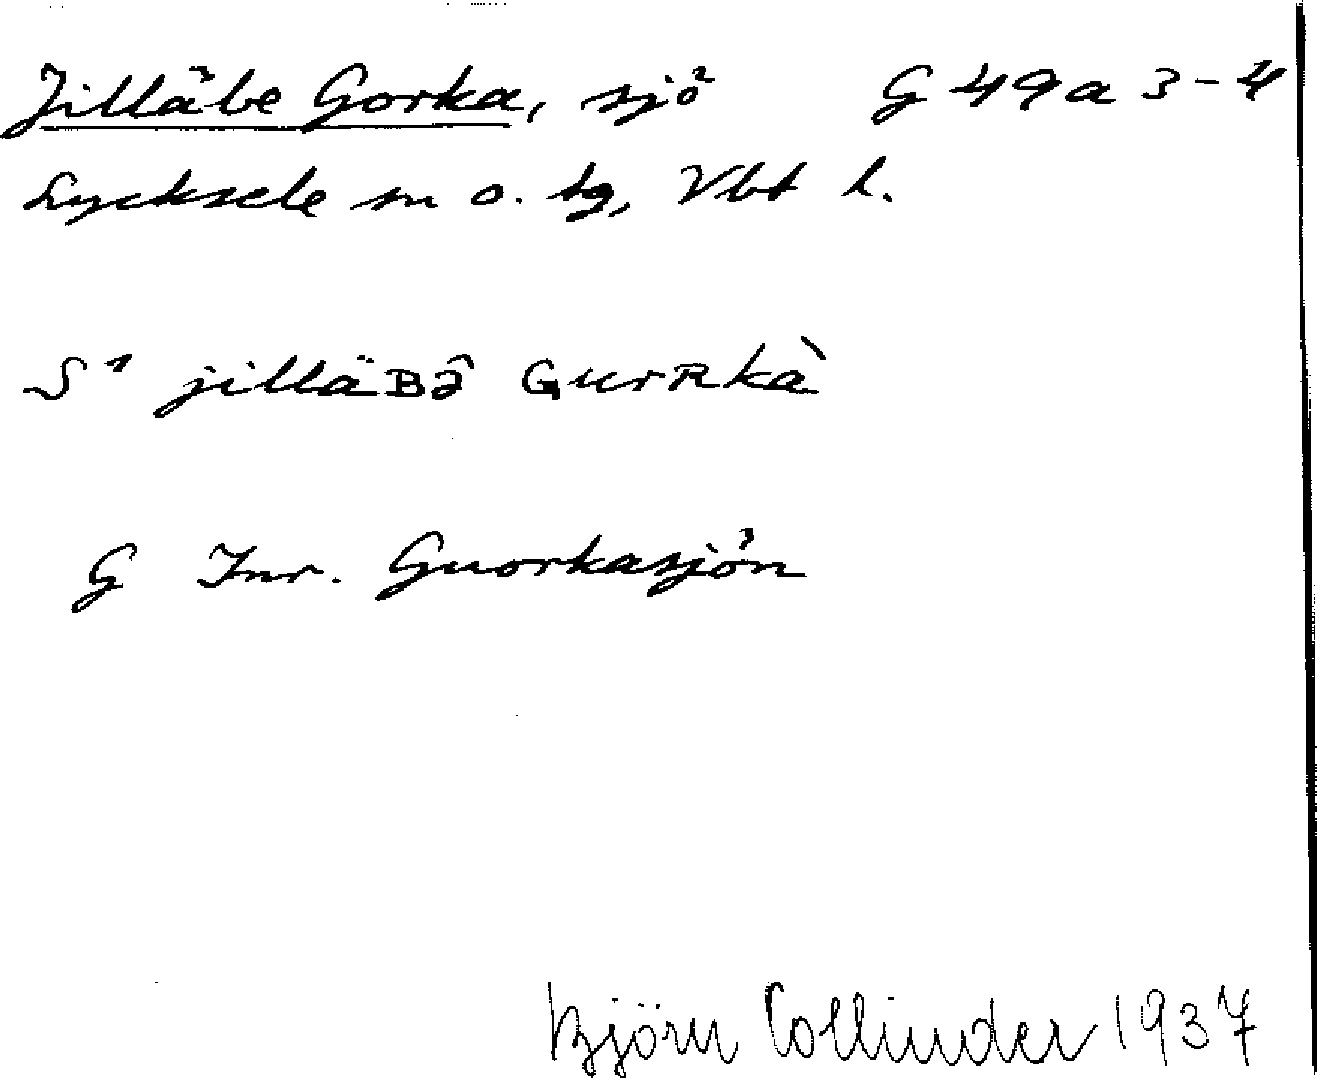 Jilläbe Gorka, sjö G 49 a 3-4
Lycksele sn o. tg, Vbt l.
S¹ jilläʙə̂ ɢurʀkà
G Inr. Guorkasjön
Björn Collinder 1937